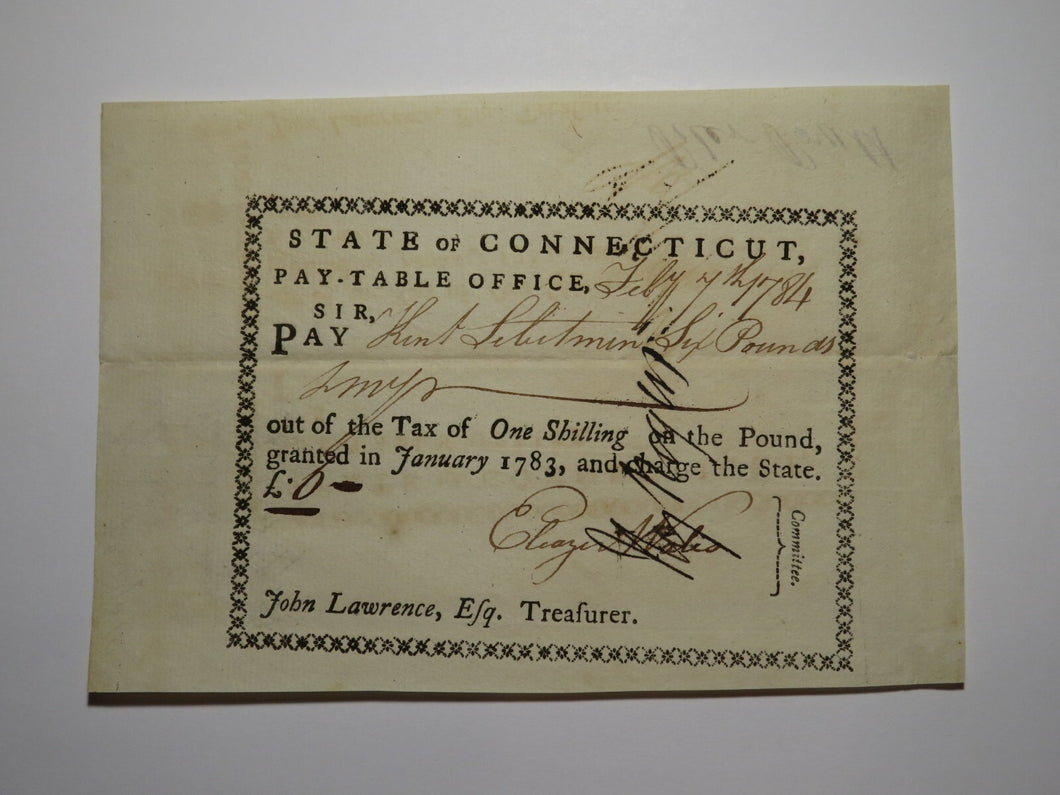 STATE OF CONNECTICUT,
PAY-TABLE OFFICE, Feby 7th 1784
SIR,
PAY Kent Selectmin Six Pounds
out of the Tax of One Shilling on the Pound,
granted in January 1783, and charge the State.
£.6
Eleazer Wales
Committee.
John Lawrence, Eſq. Treaſurer.